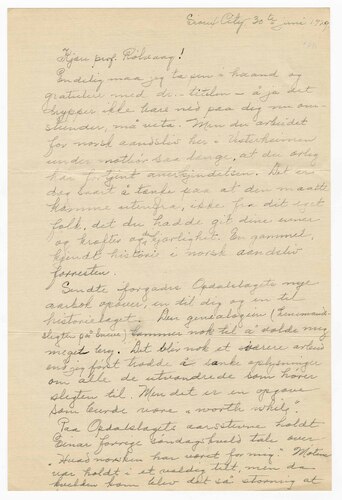 Sioux City, 30te juni 1929
Kjære prof. Rölvaag!
Endelig maa jeg ta pen i haand og
gratulere med dr. titelen – å ja det
drypper ikke bare ned paa dig nu om-
stunder, må vita. Men du arbeidet
for norsk aandsliv her i Vesterheimen
under motbör saa länge, at du ærlig
har fortjent anerkjendelsen. Det er
dog svart å tænke paa at den maatte
komme utenfra, ikke fra dit eget
folk, det du hadde git dine evner
og kræfter og din kjærlighet. En gammel
kjendt historie i norsk aandsliv
forresten.
Sendte forgaars Opdalslagets nye
aarbok opover, en til dig og en til
historielaget. Den genealogien
slegten på kommer nok til å volde mig
meget bry. Det blir nok et svære arbeid
end jeg först trodde å sanke oplysninger
om alle de utvandrede som hörer
slegten til. Men det er en opgave
som burde være "worth while".
Paa Opdalslagets aarsstevne holdt
Einar forrige söndagskveld tale over
"Hvad norsken har været for mig". Mötene
var holdt i et vældig telt, men da
kvelden kom blev det så stormig at